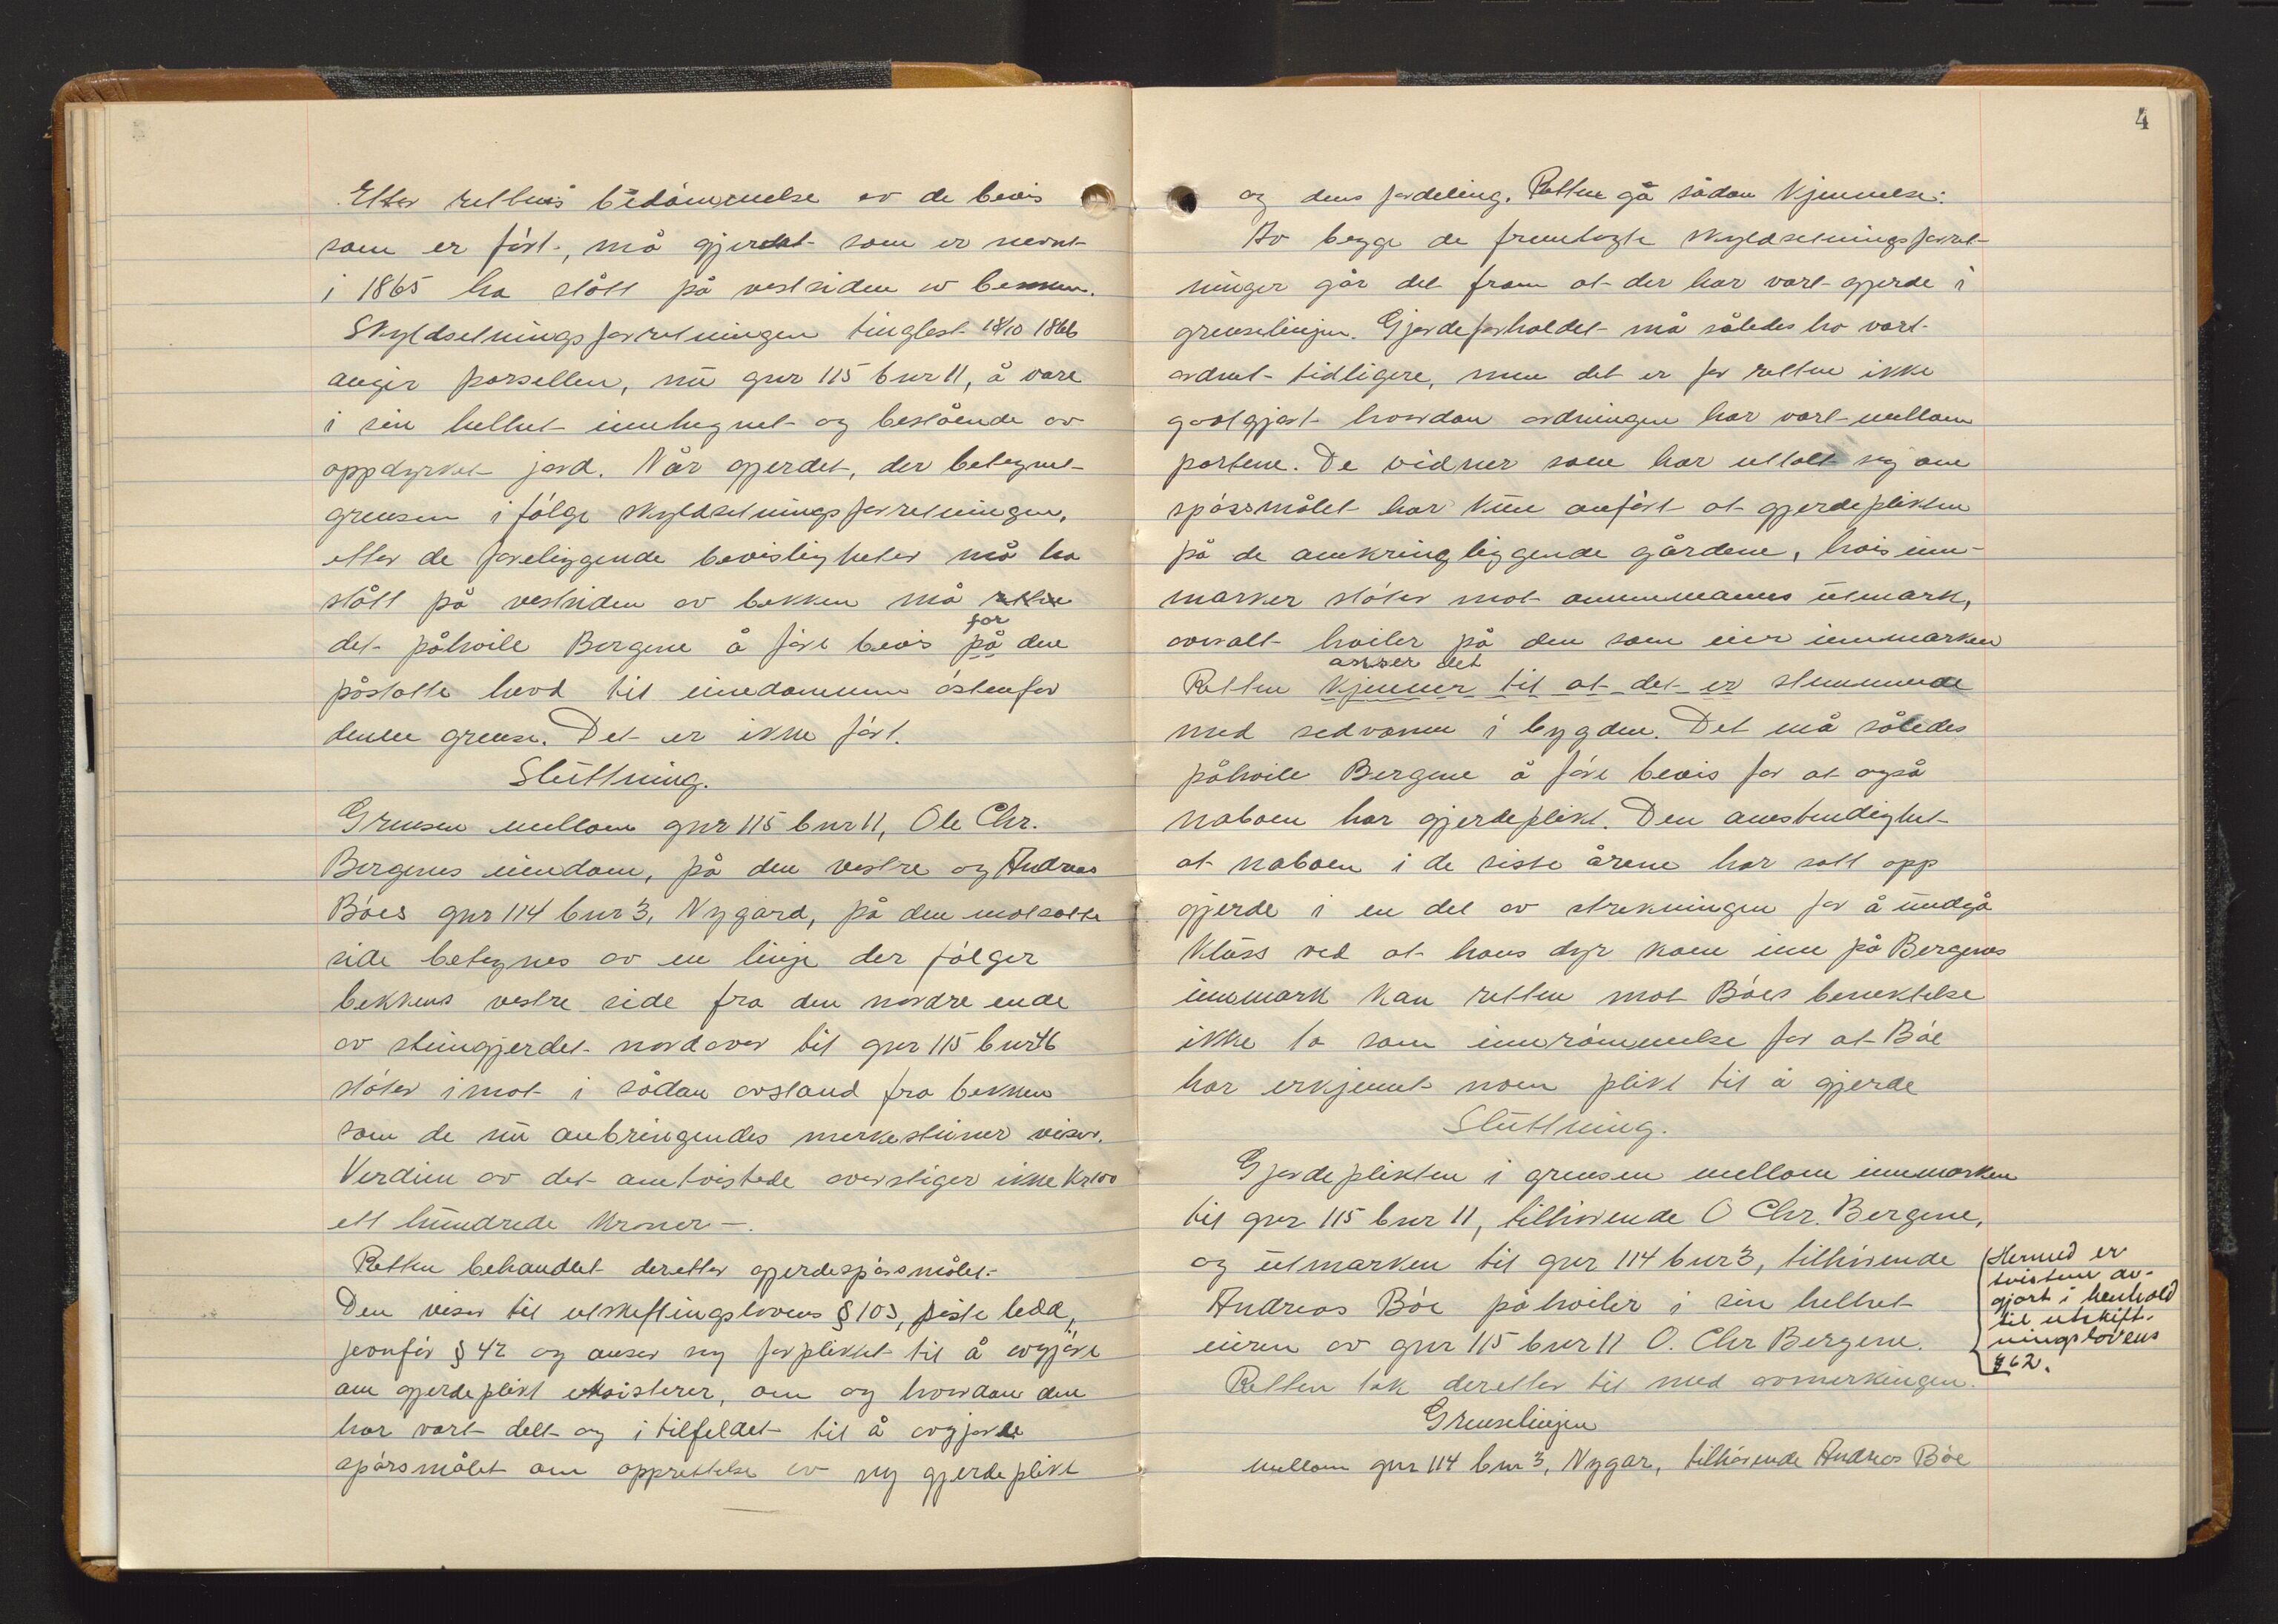 Etter rettens bedömmelse av de bevis
som er fört, må gjerdet som er nevnt
i 1865 ha stått på vestsiden av bekken.
Skyldsetningsforretningen tinglest 18/10 1866
angir parsellen, nu gnr 115 bnr 11, å være
i sin helhet innhegnet og bestående av
oppdyrket jord. Når gjerdet, der betegnet
grensen i fölge skyldsetningsforretningen,
etter de foreliggende bevisligheter må ha
stått på vestsiden av bekken må
for
det påhvile Bergene å före bevis på den
påståtte hevd til eiendommen östenfor
denne grense. Det er ikke fört.
Slutning.
Grensen mellom gnr 115 bnr 11, Ole Chr.
Bergenes eiendom, på den vestre og Andreas
Böes gnr 114 bnr 3, Nygard, på den motsatte
side betegnes av en linje der fölger
bekkens vestre side fra den nordre ende
av steingjerdet nordover til gnr 115 bnr 46
stöter imot i sådan avstand fra bekken
som de nu anbringendes merkesteiner viser.
Verdien av det omtvistede overstiger ikke kr 100
ett hundrede kroner —.
Retten behandlet deretter gjerdespörsmålet.
Den viser til utskiftingslovens § 103, siste ledd,
jevnför § 42 og anser sig forpliktet til å avgjöre
om gjerdeplikt eksisterer, om og hvordan den
har vært delt og i tilfeldet til å avgjöre
spörsmålet om opprettelse av ny gjerdeplikt
4
og dens fordeling. Retten gå sådan kjennelse:
Av begge de fremlagte skyldsetningsforret-
ninger går det fram at der har vært gjerde i
grenselinjen. Gjerdeforholdet må således ha vært
ordnet tidligere, men det er for retten ikke
godtgjort hvordan ordningen har vært mellom
partene. De vidner som har uttalt sig om
spörsmålet har kun anfört at gjerdeplikten
på de omkringliggende gårdene, hvis inn-
marker stöter mot annenmanns utmark,
overalt hviler på den som eier innmarken
anser det
Retten kjenner til at det er stemmende
med sedvanen i bygden. Det må således
påhvile Bergene å före bevis for at også
naboen har gjerdeplikt. Den omstendighet
at naboen i de siste årene har satt opp
gjerde i en del av strekningen for å undgå
kluss ved at hans dyr kom inn på Bergenes
innmark kan retten mot Böes benektelse
ikke ta som innrömmelse for at Böe
har erkjennt noen plikt til å gjerde
Slutning.
Gjerdeplikten i grensen mellom innmarken
til gnr 115 bnr 11, tilhörende O Chr. Bergene,
og utmarken til gnr 114 bnr 3, tilhörende
Andreas Böe påhviler i sin helhet
eieren av gnr 115 bnr 11 O. Chr Bergene.
Hermed er
tvisten av-
gjort i henhold
til utskift-
ningslovens
§ 62.
Retten tok deretter til med avmerkingen.
Grenselinjen
mellom gnr 114 bnr 3, Nygar, tilhörende Andreas Böe